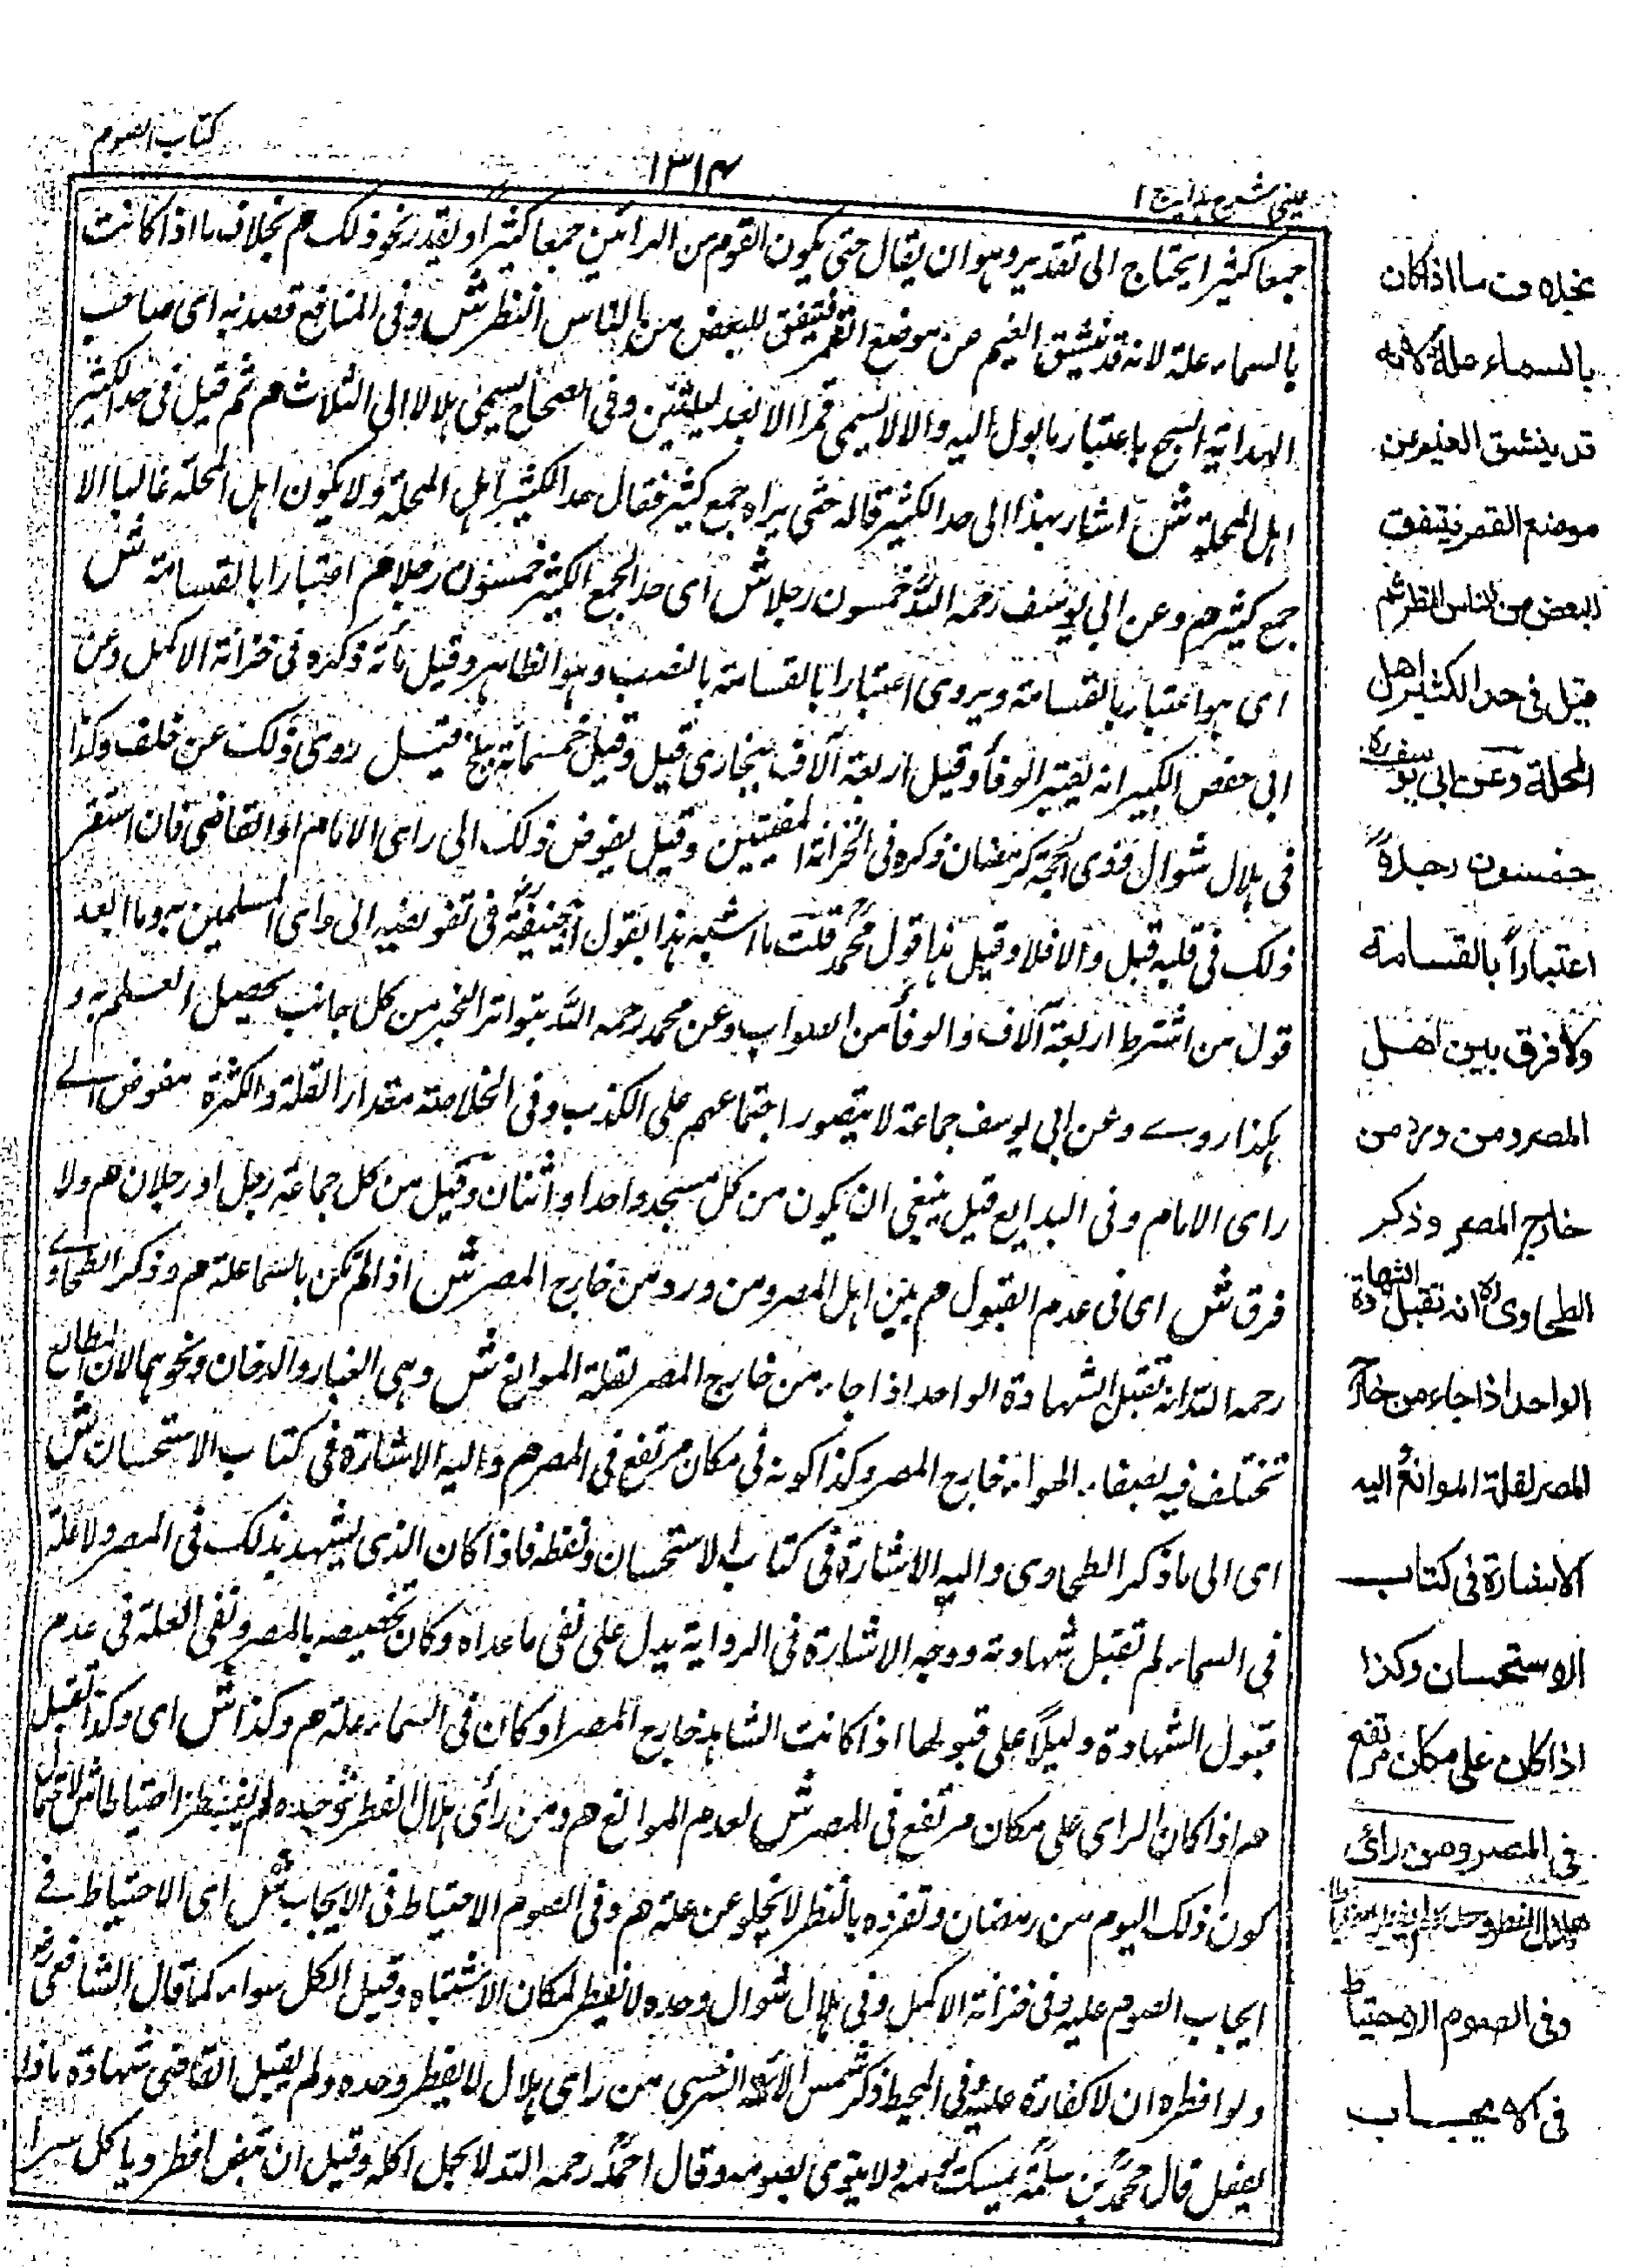 كتاب الصوم
١٣١٤
عيني شرح هدايه ج ١
جمعا كثيرا يحتاج الى تقدير وهو ان يقال حتى يكون القوم من الرائين جمعا كثيرا او يقدر نحو ذلك هم بخلاف ما اذا كانت
بالسماء علة لانه قد ينشق الغيم عن موضع القمر فيتفق للبعض من الناس النظر ش وفى المنافع قصد به اى صاحب
الهداية السجع باعتبار ما يول اليه والا لا يسمى قمرا الا بعد ليلتين وفى الصحاح يسمى هلالا الى الثلاث هم ثم قيل فى حد الكثير
اهل المحلة ش اشار بهذا الى حد الكثير قاله حتى يراه جمع كثير فقال حد الكثير اهل المحلة ولا يكون اهل المحلة غالبا الا
جمع كثير هم وعن ابي يوسف رحمه الله خمسون رجلا ش اى حد الجمع الكثير خمسون رجلا هم اعتبارا بالقسامة ش
اى هو اعتبار بالقسامة ويروى اعتبارا بالقسامة بالنصب وهو الظاهر وقيل مائة ذكره فى خزانة الاكمل وعن
ابي حفص الكبير انه يعتبر الوفا وقيل اربعة آلاف ببخارى قيل وقيل خمسمائة ببلخ قيل روى ذلك عن خلف وكذا
فى هلال شوال وذى الحجة كرمضان ذكره فى الخزانة المفتيين وقيل يفوض ذلك الى راى الامام او القاضى فان استقر
ذلك فى قلبه قبل والا فلا وقيل هذا قول محمد قلت ما اشبه هذا بقول ابي حنيفة فى تفويضه الى راى المسلمين به وما ابعد
قول من اشترط اربعة آلاف والوفا من الصواب وعن محمد رحمه الله بتواتر الخبر من كل جانب يحصيل العلم به و
هكذا روى وعن ابي يوسف جماعة لا يتصور اجتماعهم على الكذب وفى الخلاصة مقدار القلة والكثرة مفوض الى
راى الامام وفى البدايع قيل ينبغى ان يكون من كل مسجد واحد او اثنان وقيل من كل جماعة رجل او رجلان هم ولا
فرق ش اى فى عدم القبول هم بين اهل المصر ومن ورد من خارج المصر ش اذا لم تكن بالسما علة هم وذكر الطحاوى
رحمه الله انه تقبل الشهادة الواحد اذا جاء من خارج المصر لقلة الموانع ش وهى الغبار والدخان ونحوهما لان المطالع
تختلف فيه بصفاء الهواء خارج المصر وكذا كونه فى مكان مرتفع فى المصر هم واليه الاشارة فى كتاب الاستحسان ش
اى الى ما ذكر الطحاوى واليه الاشارة فى كتاب الاستحسان ولفظه فاذا كان الذى يشهد بذلك فى المصر ولا علة
فى السماء لم تقبل شهادته ووجه الاشارة فى الرواية يدل على نفى ما عداه وكان تخصيصه بالمصر ونفى العلة فى عدم
قبول الشهادة دليلا على قبولها اذا كانت الشاهد خارج المصر او كان فى السماء علة هم وكذا ش اى وكذا تقبل
هم اذا كان الراى على مكان مرتفع فى المصر ش لعدم الموانع هم ومن رأى هلال الفطر وحده لم يفطر احتياطا ش لاحتمال
كون ذلك اليوم من رمضان وتفرده بالنظر لا يخلو عن علة هم وفى الصوم الاحتياط فى الايجاب ش اى الاحتياط فى
ايجاب الصوم عليه وفى خزانة الاكمل وفى هلال شوال وحده لا يفطر لمكان الاشتباه وقيل الكل سواء كما قال الشافعى
ولو افطره ان لا كفارة عليه وفى المحيط ذكر شمس الائمة السرخسى من راى هلال لا يفطر وحده ولم يقبل القاضى شهادة ماذا
يفعل قال محمد بن سلمة يمسك يومه ولا ينوى بصومه وقال احمد رحمه الله لا يحل اكله وقيل ان تيقن افطر وياكل سرا
بخلاف ما اذا كان
بالسماء علة لانه
قد ينشق الغيم عن
موضع القمر فيتفق
للبعض من الناس النظر ثم
قيل فى حد الكثير اهل
المحلة وعن ابي يوسف ره
خمسون رجلاً
اعتباراً بالقسامة
ولا فرق بين اهل
المصر ومن ورد من
خارج المصر وذكر
الطحاوى ره انه تقبل الشهادة
الواحد اذا جاء من خارج
المصر لقلة الموانع واليه
الاشارة فى كتاب
الاستحسان وكذا
اذا كان على مكان مرتفع
فى المصر ومن رأى
هلال الفطر وحده لم يفطر احتياطا
وفى الصوم الاحتياط
فى الايجاب